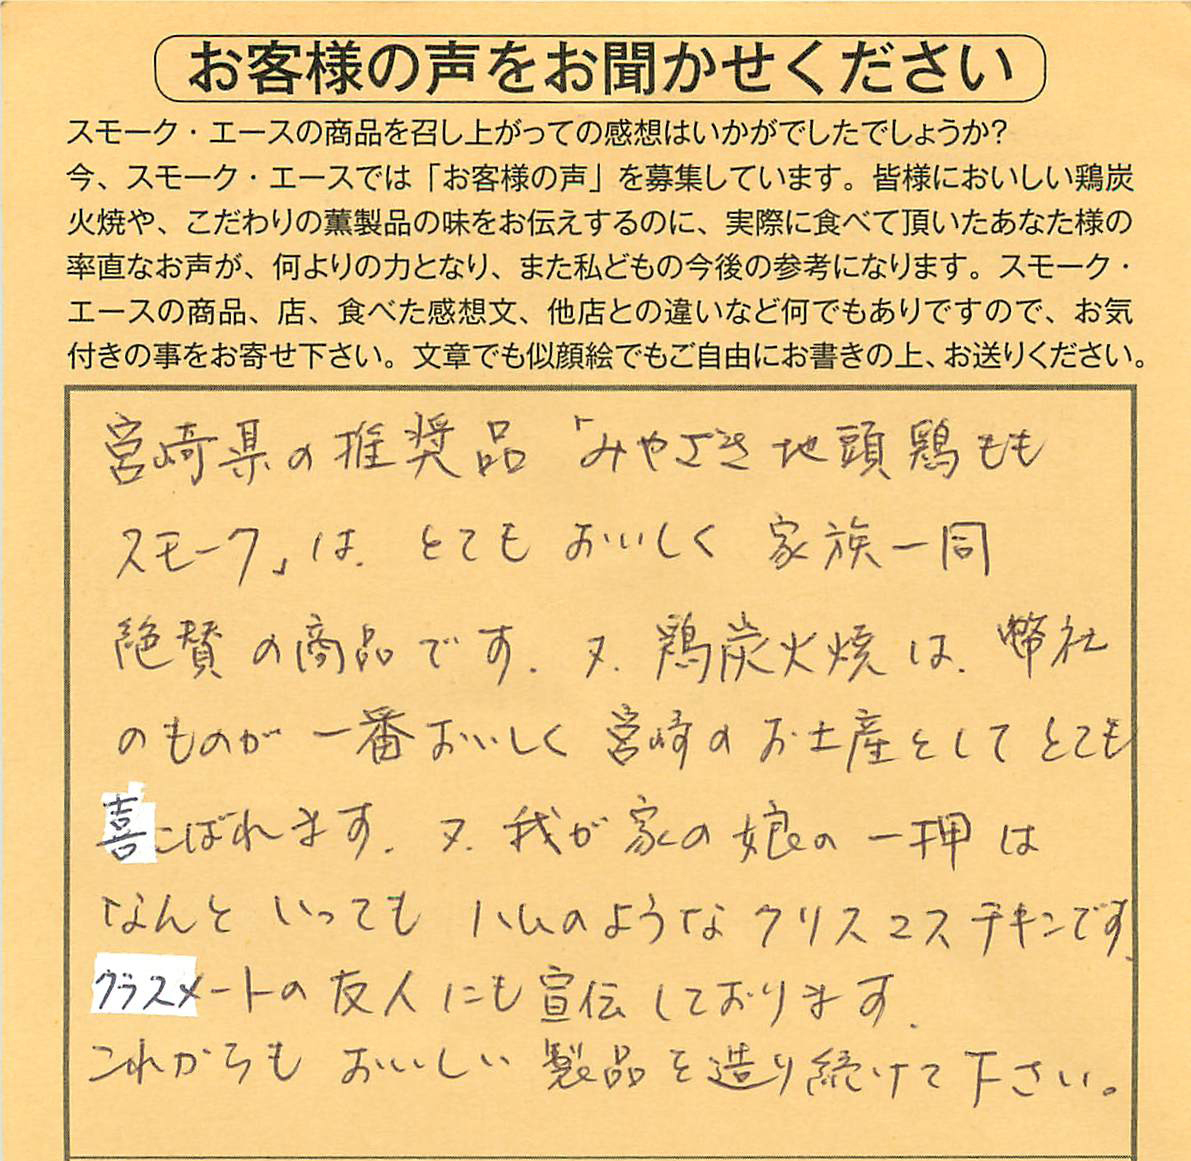 お客様の声をお聞かせください
スモーク・エースの商品を召し上がっての感想はいかがでしたでしょうか?
今、スモーク・エースでは「お客様の声」を募集しています。皆様においしい鶏炭
火焼や、こだわりの薫製品の味をお伝えするのに、実際に食べて頂いたあなた様の
率直なお声が、何よりの力となり、また私どもの今後の参考になります。スモーク・
エースの商品、店、食べた感想文、他店との違いなど何でもありですので、お気
付きの事をお寄せ下さい。文章でも似顔絵でもご自由にお書きの上、お送りください。
宮崎県の推奨品「みやざき地頭鶏もも
スモーク」は、とてもおいしく家族一同
絶賛の商品です。又、鶏炭火焼は、幣社
のものが一番おいしく宮崎のお土産としてとても
喜こばれます。又、我が家の娘の一押は
なんといってもハムのようなクリスマスチキンです。
クラスメートの友人にも宣伝しております。
これからもおいしい製品を造り続けて下さい。